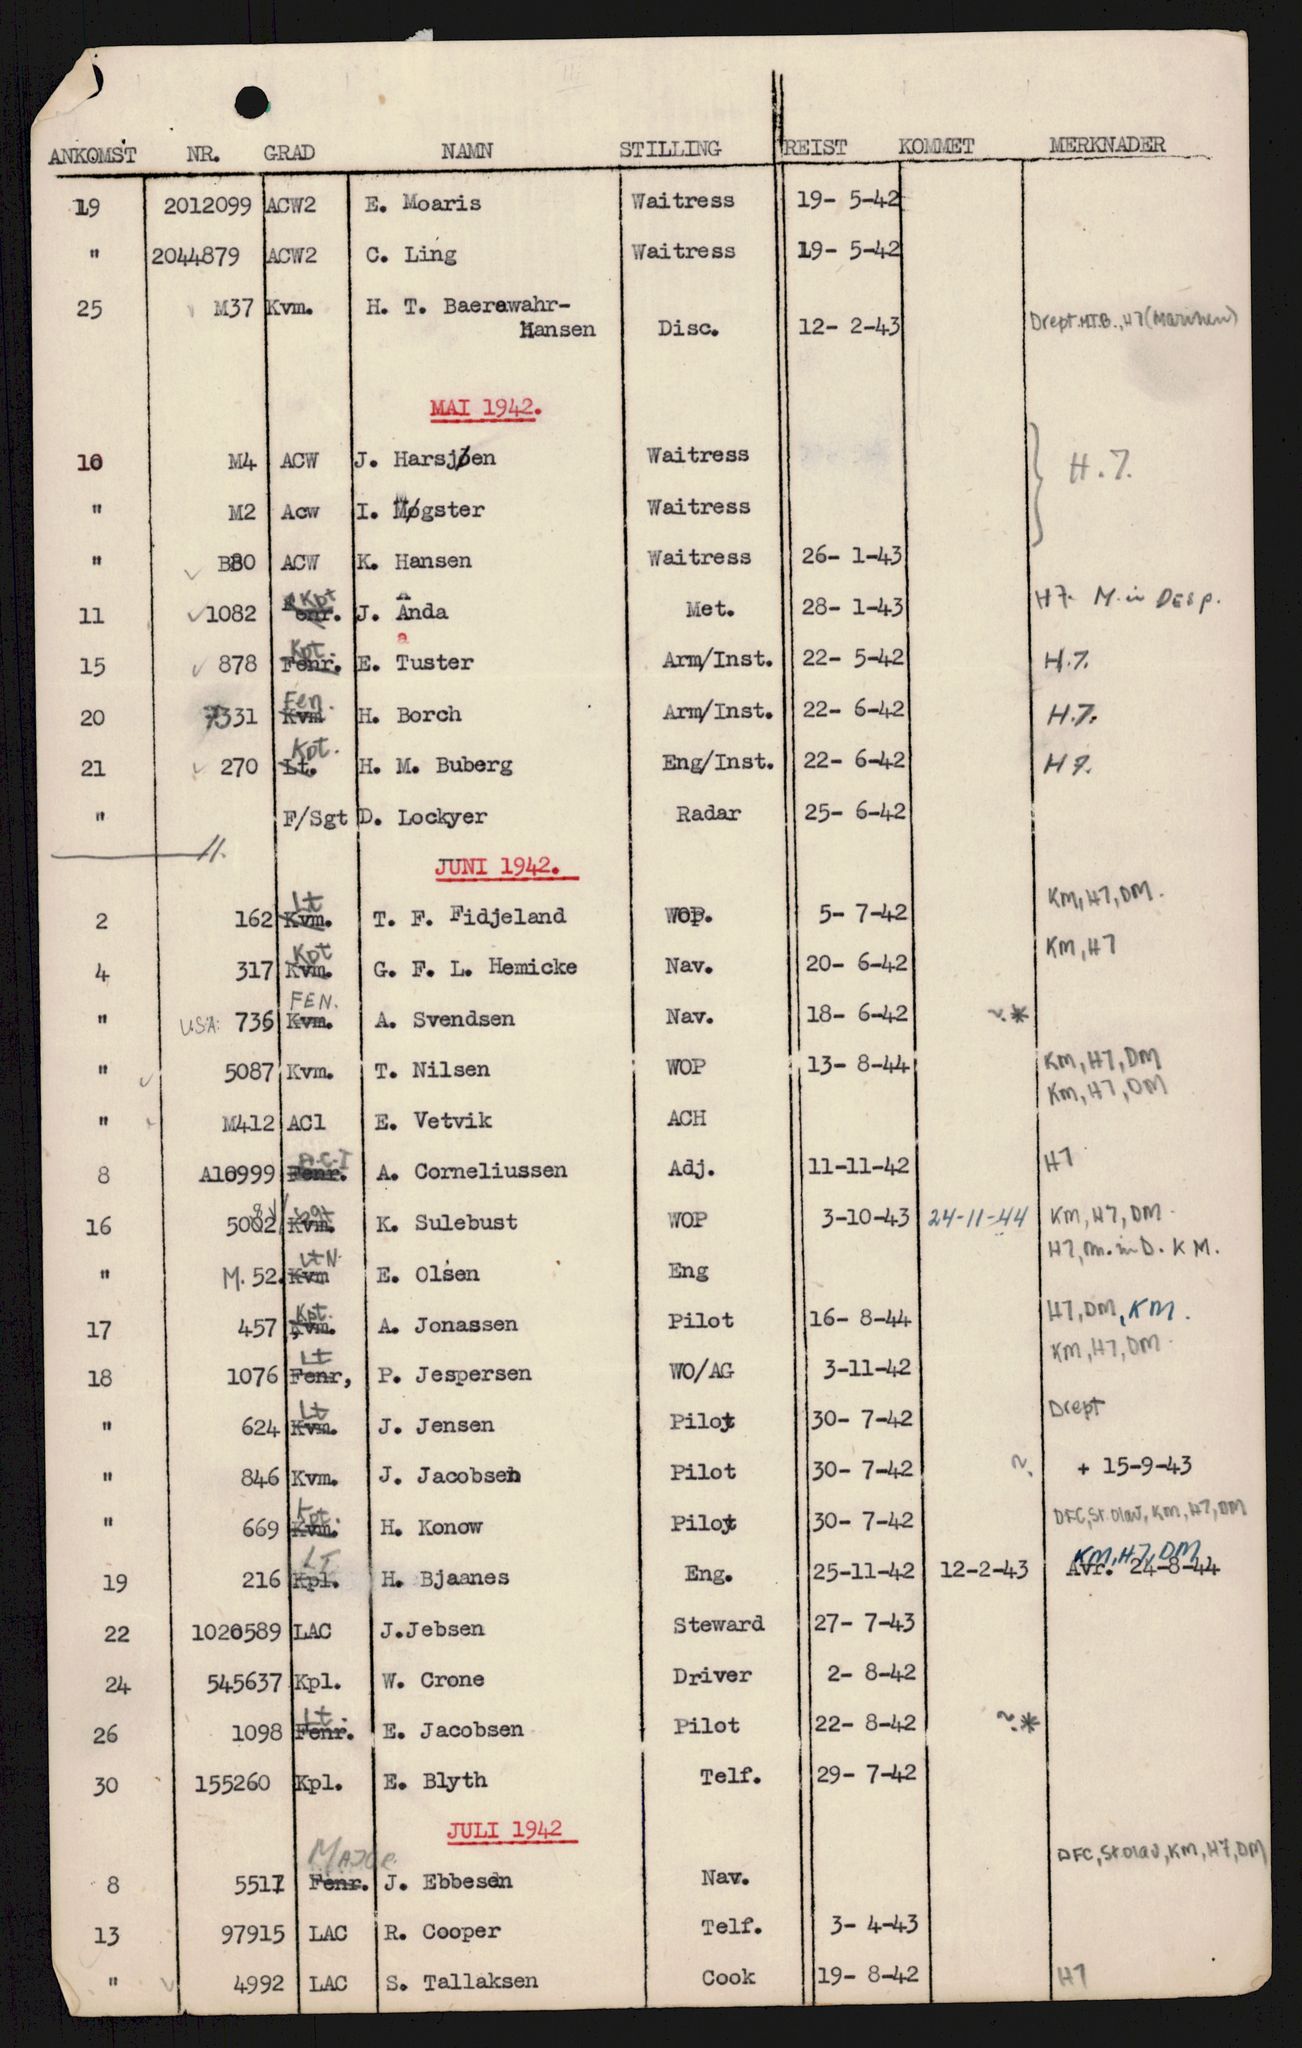 ANKOMST NR. GRAD NAMN STILLING REIST KOMMET MERKNADER
19 2012099 ACW2 E. Moaris Waitress 19- 5-42
" 2044879 ACW2 C. Ling Waitress 19- 5-42
25 M37 Kvm. H. T. Baerewahr-
Hansen Disc. 12- 2-43 Drept.M.T.B., H7 (Marinen)
MAI 1942.
10 M4 ACW J. Harsjøen Waitress H.7.
" M2 Acw I. Møgster Waitress
" B80 ACW K. Hansen Waitress 26- 1-43
11 1082 Fenr. Kpt J. Anda Met. 28- 1-43 H7. M. in Desp.
15 878 Fenr. Kpt. E. Tuster a Arm/Inst. 22- 5-42 H.7.
20 7331 Kvm Fen. H. Borch Arm/Inst. 22- 6-42 H.7.
21 270 Lt. Kpt. H. M. Buberg Eng/Inst. 22- 6-42 H7.
" F/Sgt D. Lockyer Radar 25- 6-42
11.
JUNI 1942.
2 162 Kvm. Lt T. F. Fidjeland WOP. 5- 7-42 KM, H7, DM.
4 317 Kvm. Kpt G. F. L. Hemicke Nav. 20- 6-42 KM, H7
" USA: 736 Kvm. FEN. A. Svendsen Nav. 18- 6-42 ~.*
" 5087 Kvm. T. Nilsen WOP 13- 8-44 KM, H7, DM
" M412 AC1 E. Vetvik ACH KM, H7, DM
8 A10999 Fenr. A. Corneliussen Adj. 11-11-42 H7
16 5002 Kvm. K. Sulebust WOP 3-10-43 24-11-44 KM, H7, DM.
" M. 52. Kvm Lt N. E. Olsen Eng H7, m. in D. KM.
17 457 Kvm. Kpt. A. Jonassen Pilot 16- 8-44 H7, DM, KM.
18 1076 Fenr, Lt P. Jespersen WO/AG 3-11-42 KM, H7, DM.
" 624 Kvm. Lt J. Jensen Pilot 30- 7-42 Drept
" 846 Kvm. J. Jacobsen Pilot 30- 7-42 ~. + 15-9-43
" 669 Kvm. Kpt. H. Konow Pilot 30- 7-42 DFC, St. Olav, KM, H7, DM
19 216 Kpl. LT H. Bjaanes Eng. 25-11-42 12-2-43 KM, H7, DM Avr. 24-8-44
22 1020589 LAC J.Jebsen Steward 27- 7-43
24 545637 Kpl. W. Crone Driver 2- 8-42
26 1098 Fenr. Lt. E. Jacobsen Pilot 22- 8-42 ~.*
30 155260 Kpl. E. Blyth Telf. 29- 7-42
JULI 1942
8 5511 Fenr. MAJOR. J. Ebbesen Nav. DFC, St Olav, KM, H7, DM
13 97915 LAC R. Cooper Telf. 3- 4-43
" 4992 LAC S. Tallaksen Cook 19- 8-42 H7